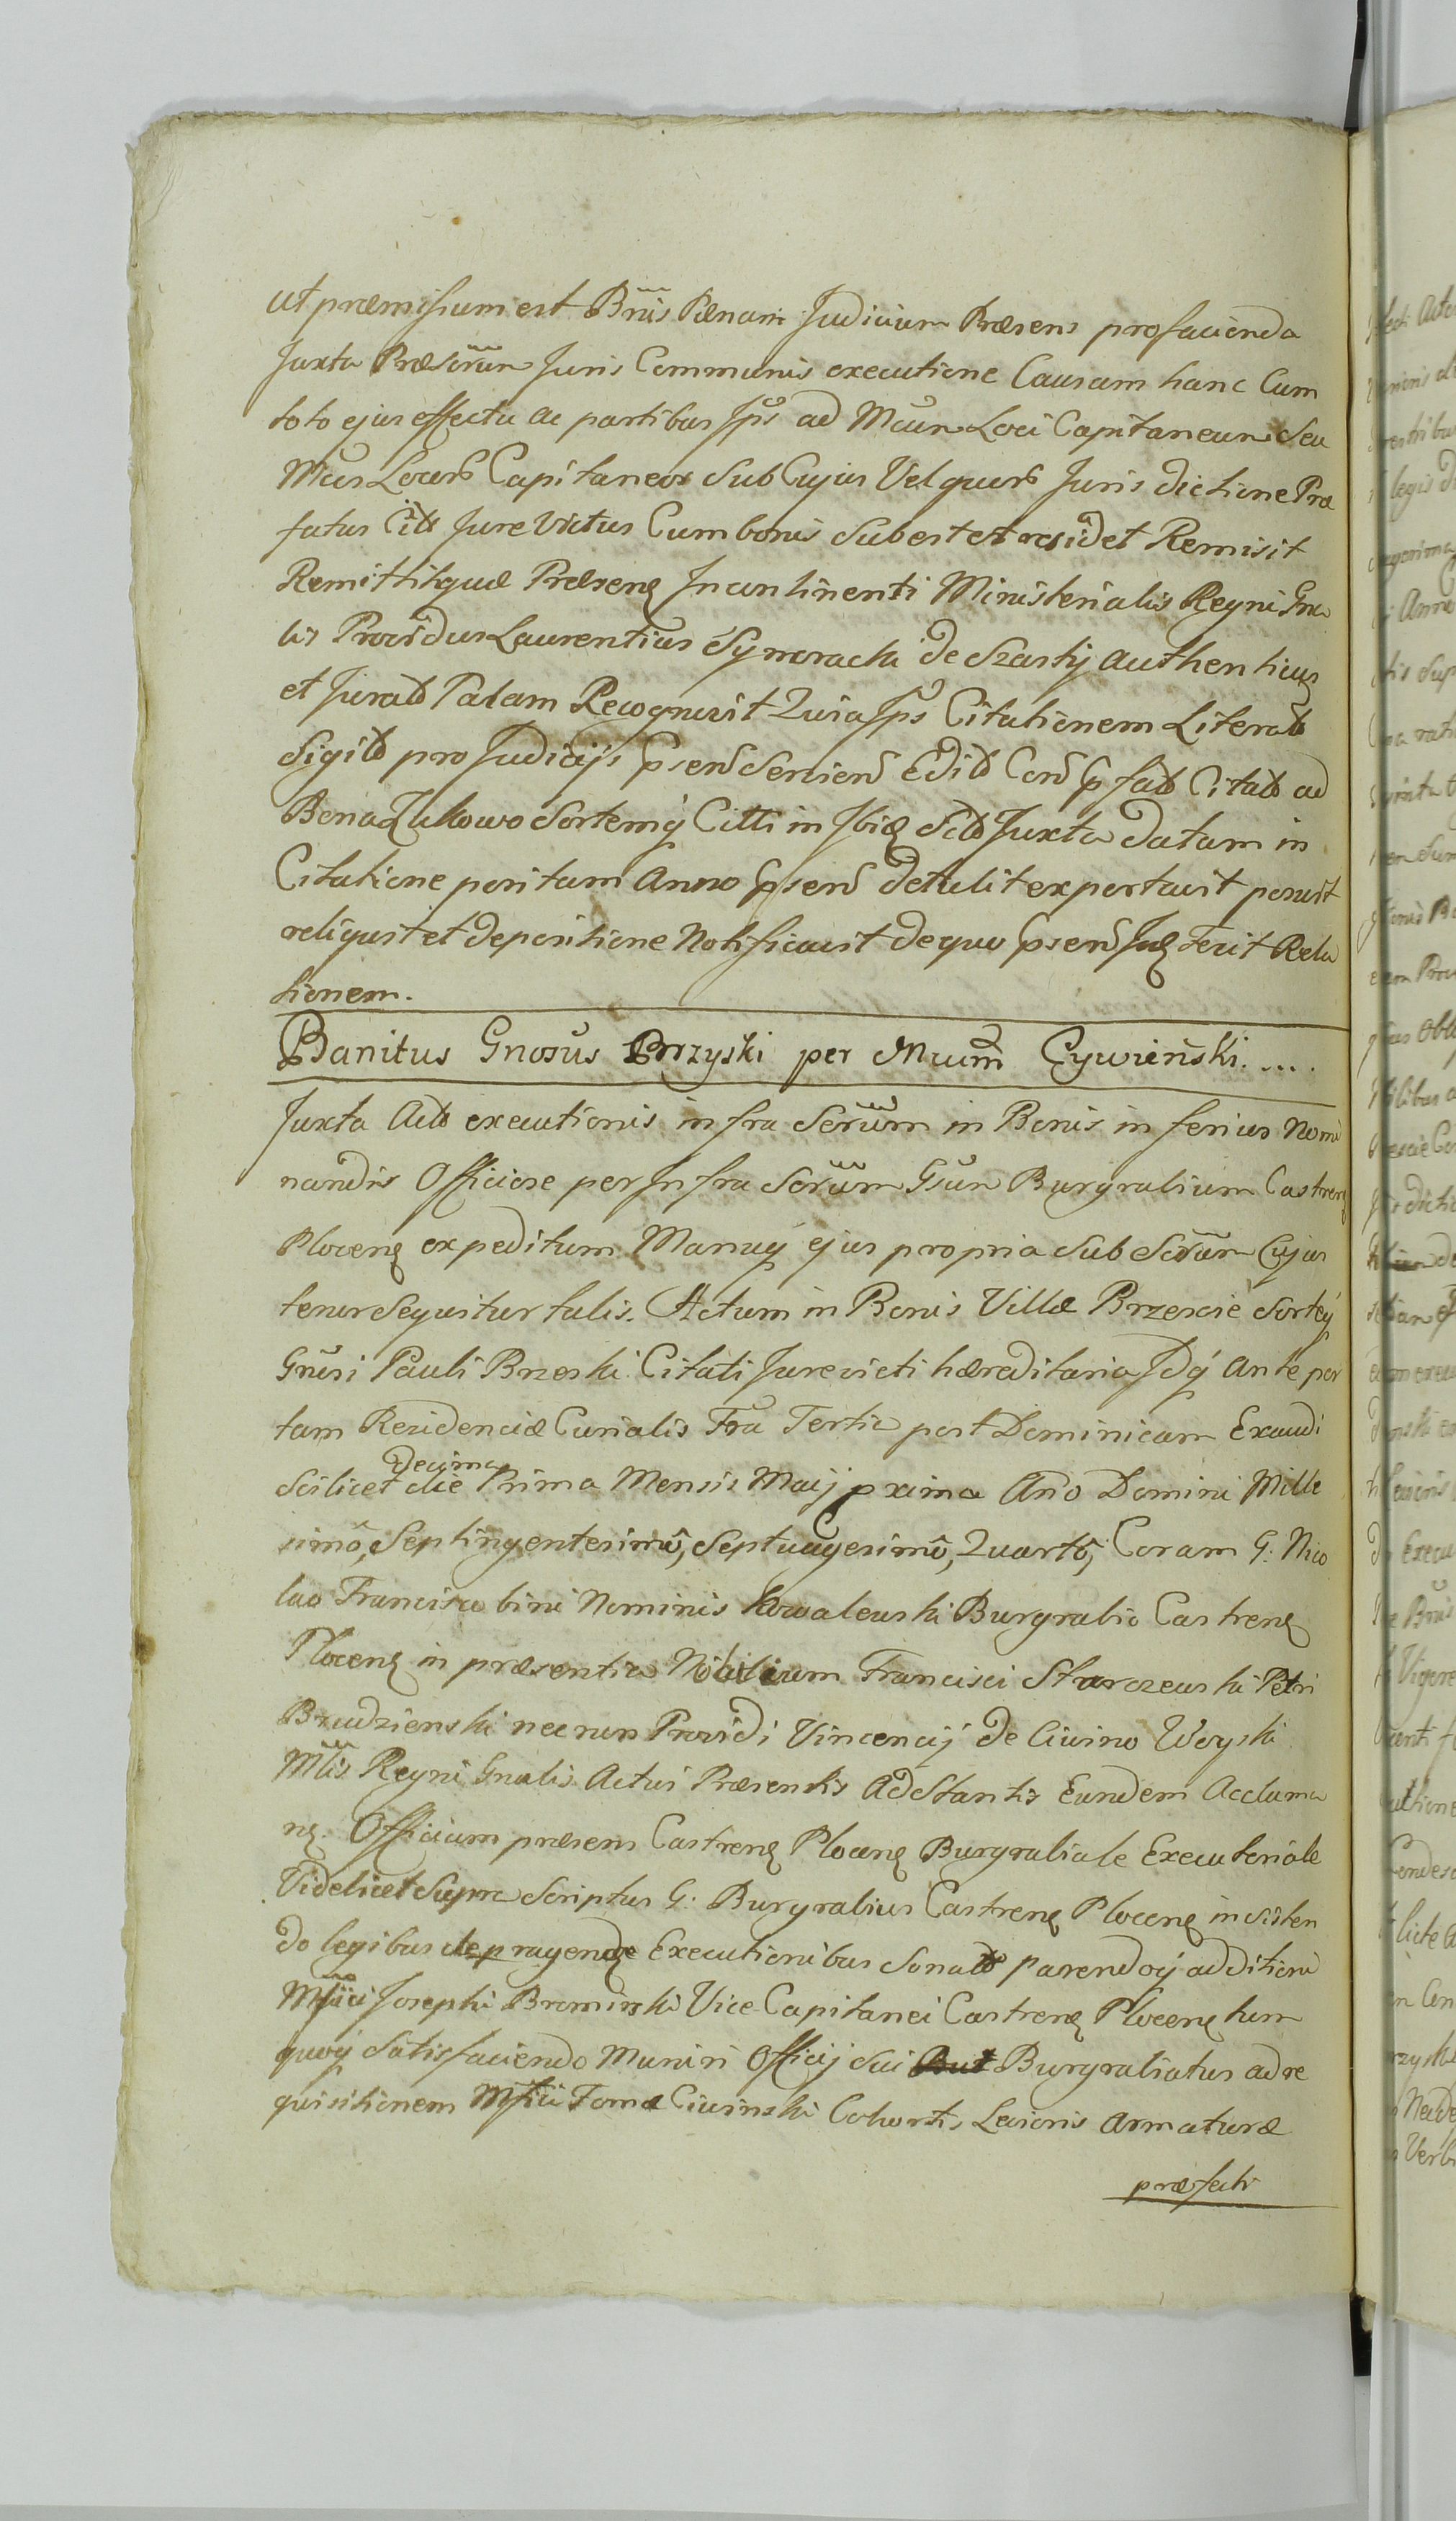 ut præmissum est Bnis Pænam Judicium Præsens pro facienda
Juxta Præscrum Juris Communis executione Causam hanc Cum
toto ejus effectu ac partibus Jps ad Mcum Loci Capitaneum Seu
Mcus Locorum Capitaneos Sub Cujus Vel quorum Juris dictione Præ
fatus Citt Jure Victus Cum bonis Subest et residet Remisit
Remittitque Præsens In continenti Ministerialis Regni Gna
lis Providus Laurentius Symoracki de Szasty authenticus
et Jurat Palam Recognovit Quia Jps Citationem Literat
Sigit pro Judicijs psen Servien Edit Con p fat Citat ad
Bona Zukowo Sortemq Citti in Ibid Sit Juxta datam in
Citatione positam Anno psen detulit exportavit posuit
reliquit et depositione Notificavit de quo psen Jud fecit Rela
tionem.
Banitus Gnosus Brzyski per Mcum Cywieński....
Juxta Act executionis infra Scrum in Bonis inferius Nomi
nandis Officiose per Infra Scrum Gsum Burgrabium Castren
Plocens expeditum Manuq ejus propria Sub Scrum Cujus
tenor Sequitur talis. Actum in Bonis Villæ Brzescie Sorteq
Gnusi Pauli Brzeski Citati Jurevicti hæreditaria Idq Ante por
tam Rezidenciæ Curialis Fra Tertia post Dominicam Exaudi
Scilicet die decima Prima Mensis Maij pxima Ano Domini Mille
simo, Septingentesimo, Septuagesimo, Quarto, Coram G: Nico
lao Francisco bini Nominis Kowalewski Burgrabio Castrens
Plocens in præsentia Nobilium Francisci Starczewski Petri
Brudzienski nec non Providi Vincencij de Civino Woyski
Mlis Regni Gnalis Actui Præsentis AdStantis Eundem Acclama
ns. Officium præsens Castrens Plocens Burgrabiale Executoriale
Videlicet Supra Scriptus G: Burgrabius Castrens Plocens insisten
do legibus de pragendis Executionibus Sonat parendoq additioni
Mfici Josephi Bromirski Vice-Capitanei Castrens Plocens tum
quoq Satisfaciendo Muniri Officij Sui Burgrabiatus ad re
quisitionem Mfici Toma Civinski Cohortis Levioris Armaturæ
præfecti